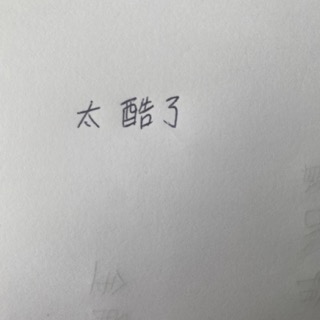 太酷了